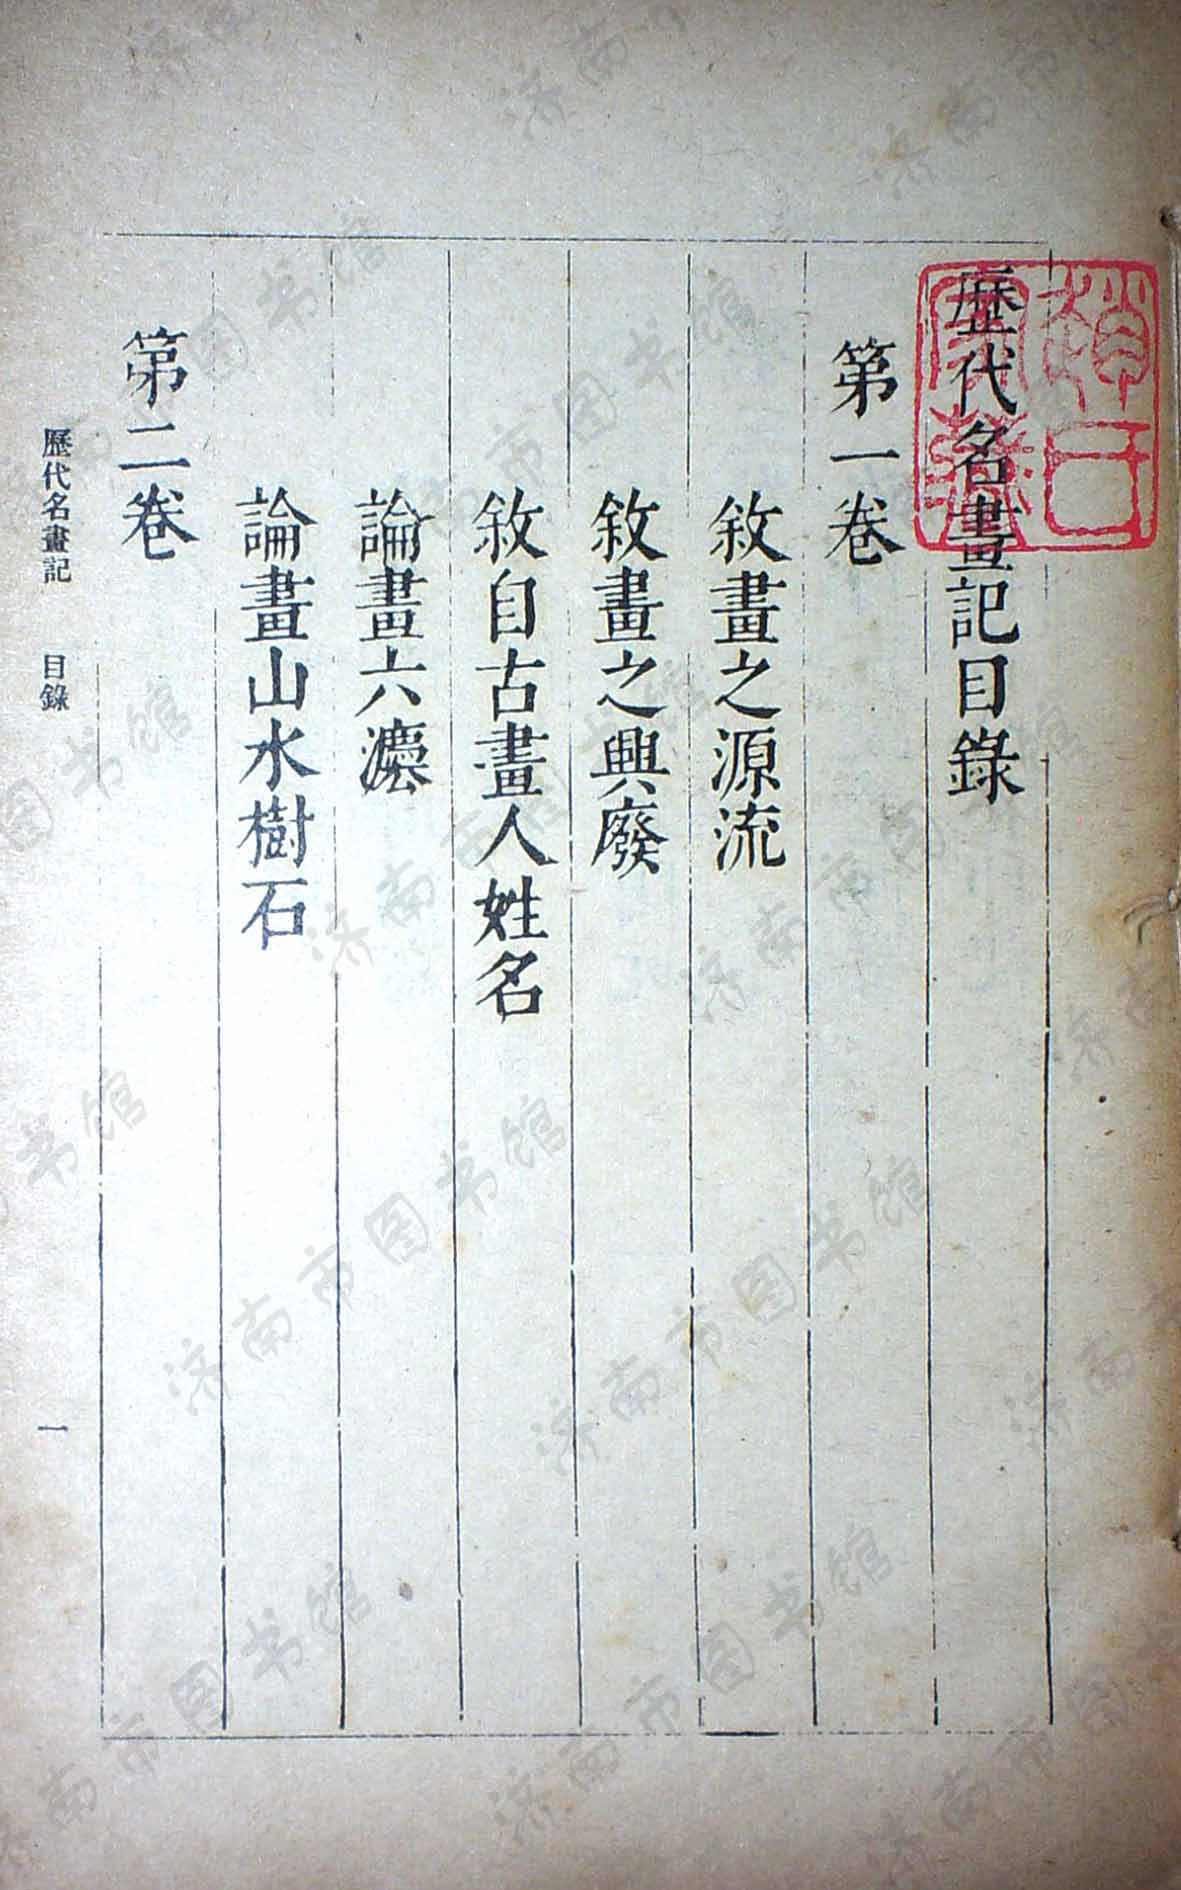 歷代名畫記目錄
第一卷
敘畫之源流
敘畫之興廢
敘自古畫人姓名
論畫六灋
論畫山水樹石
第二卷
歷代名畫記 目錄 一
济南市图书馆